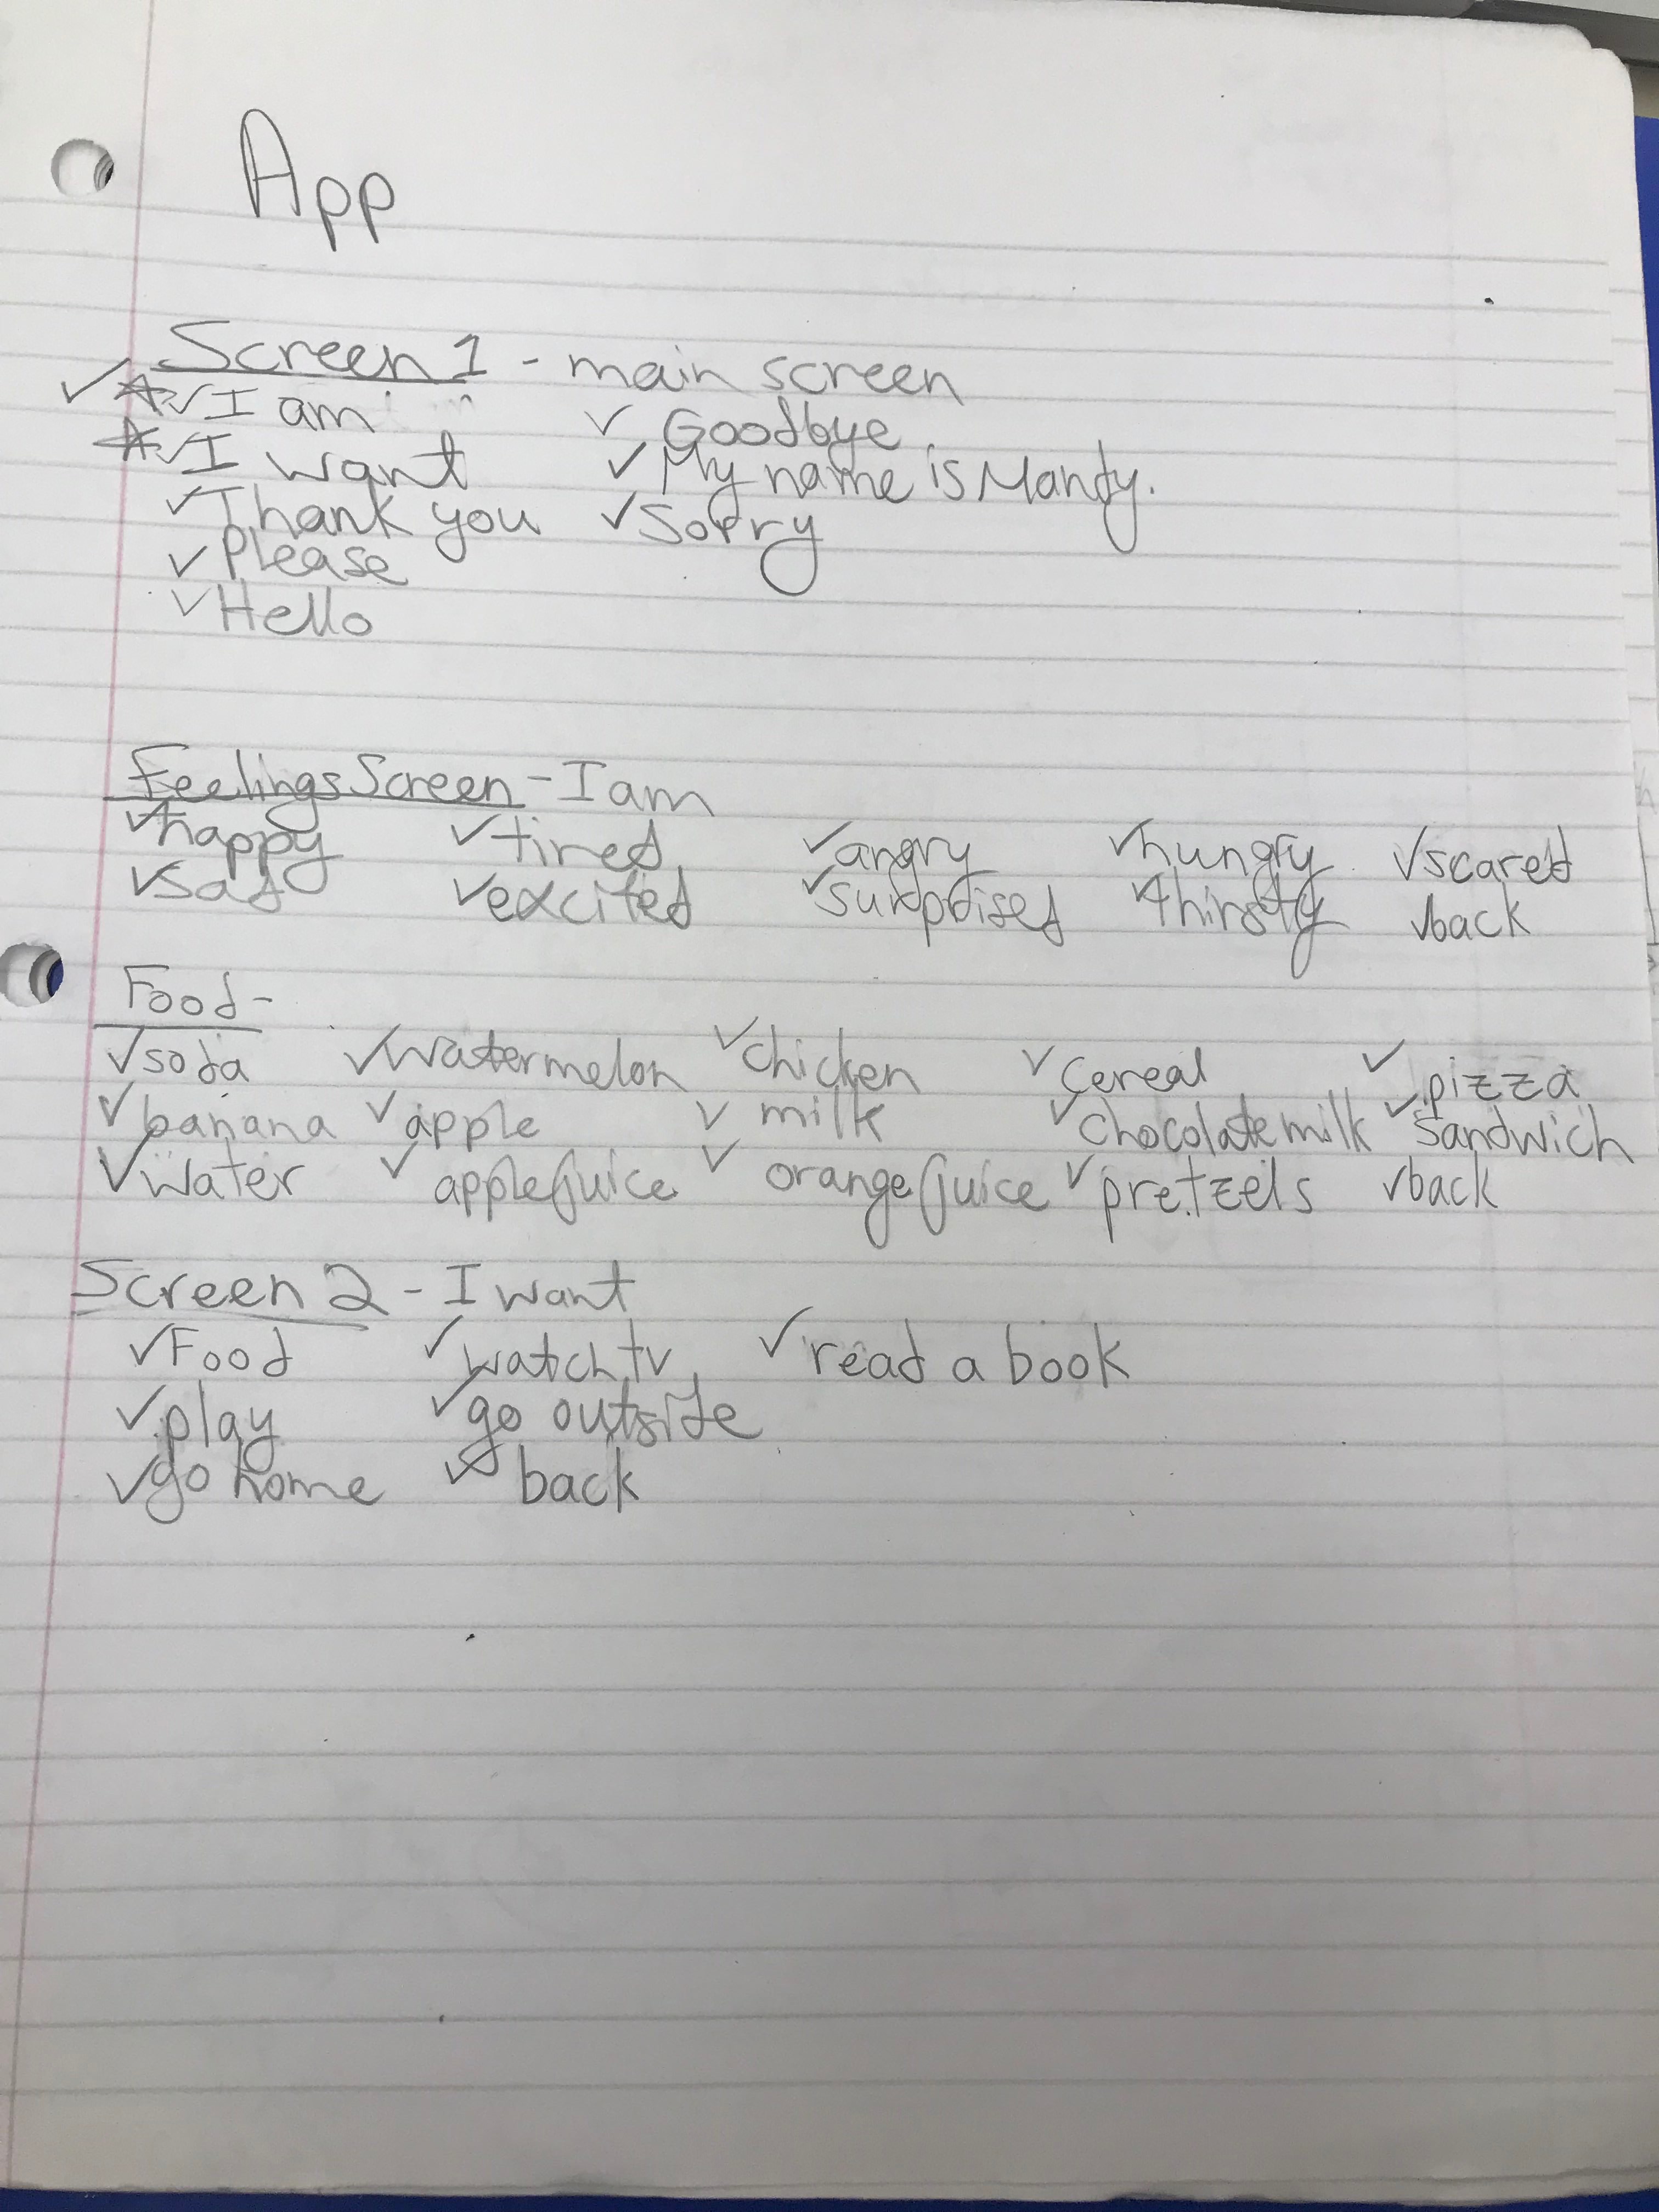 App
✓Screen 1 - main screen
☆✓I am ✓Goodbye
☆✓I want ✓My name is Mandy.
✓Thank you ✓Sorry
✓please
✓Hello
Feelings Screen - I am
✓happy ✓tired ✓angry ✓hungry ✓scared
✓sad ✓excited ✓surprised ✓thirsty ✓back
Food -
✓soda ✓watermelon ✓chicken ✓cereal ✓pizza
✓banana ✓apple ✓milk ✓chocolate milk ✓sandwich
✓water ✓apple juice ✓orange juice ✓pretzels ✓back
Screen 2 - I want
✓Food ✓watch tv ✓read a book
✓play ✓go outside
✓go home ✓back